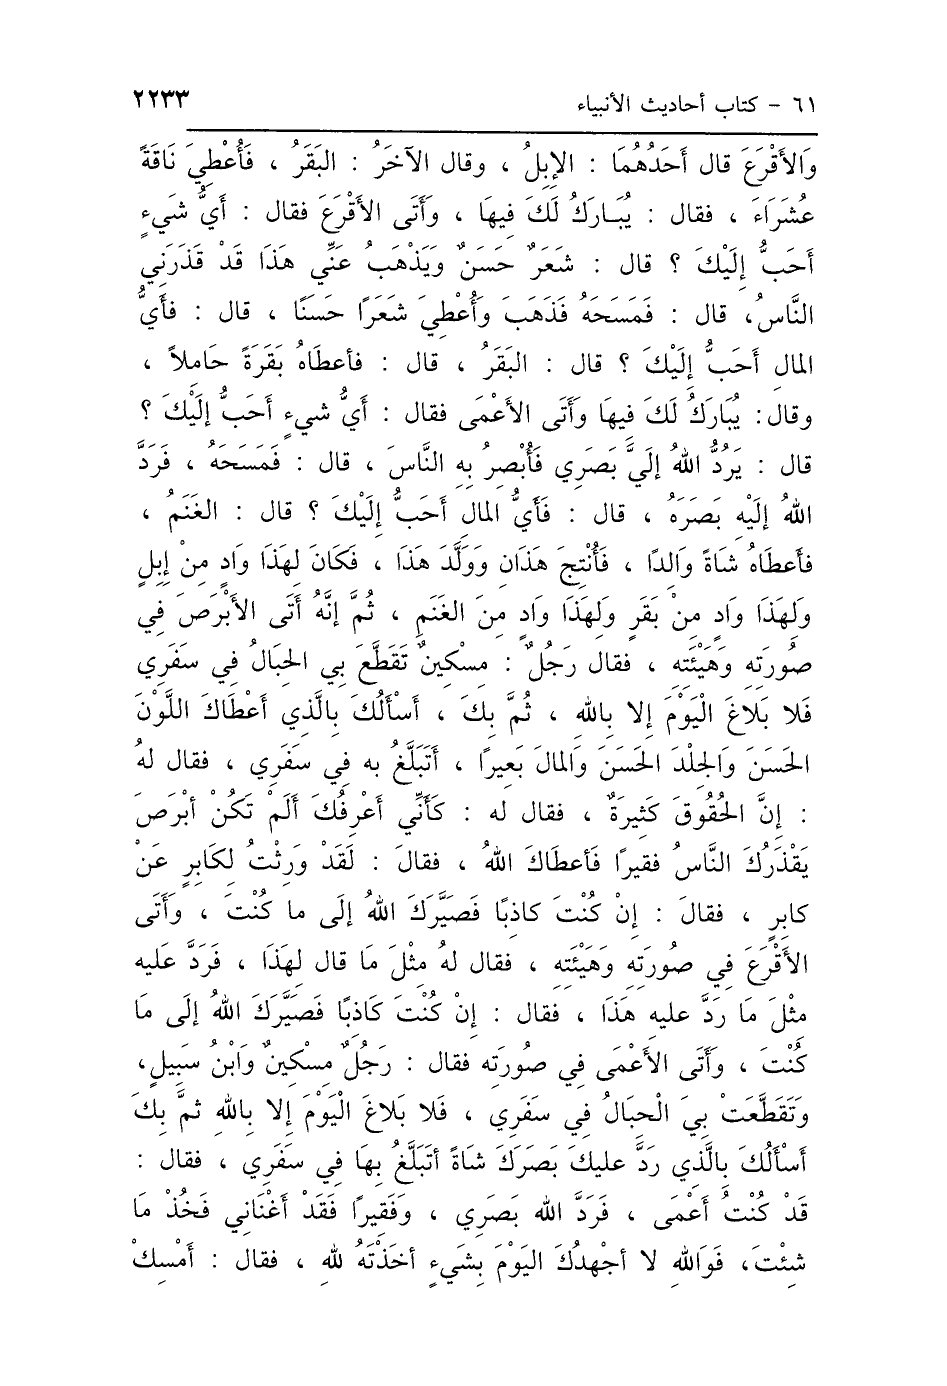 ٦١ - كتاب أحاديث الأنبياء ٢٢٣٣
وَالأَقْرَعَ قال أَحَدُهُمَا : الإبِلُ ، وقال الآخَرُ : البَقَرُ ، فَأُعْطِيَ نَاقَةً
عُشَرَاءَ ، فقال : يُبَارَكُ لَكَ فِيهَا ، وَأَتَى الأَقْرَعَ فقال : أَيُّ شَيءٍ
أَحَبُّ إِلَيْكَ ؟ قال : شَعَرٌ حَسَنٌ وَيَذْهَبُ عَنِّي هَذَا قَدْ قَذَرَنِي
النَّاسُ، قال : فَمَسَحَهُ فَذَهَبَ وَأُعْطِيَ شَعَرًا حَسَنًا ، قال : فَأَيُّ
المالِ أَحَبُّ إِلَيْكَ ؟ قال : البَقَرُ ، قال : فأعطَاهُ بَقَرَةً حَاملاً ،
وقال: يُبَارَكُ لَكَ فيهَا وَأَتَى الأَعْمَى فقال : أَيُّ شيءٍ أَحَبُّ إِلَيْكَ ؟
قال : يَرُدُّ اللهُ إِلَيَّ بَصَرِي فَأُبْصِرُ بِهِ النَّاسَ ، قال : فَمَسَحَهُ ، فَرَدَّ
اللهُ إِلَيْهِ بَصَرَهُ ، قال : فَأَيُّ المَالِ أَحَبُّ إِلَيْكَ ؟ قال : الغَنَمُ ،
فأعطَاهُ شَاةً وَالِدًا ، فَأُنْتِجَ هَذَانِ وَوَلَّدَ هَذَا ، فَكَانَ لِهَذَا وَادٍ مِنْ إِبِلٍ
وَلِهَذَا وَادٍ مِنْ بَقَرٍ وَلِهَذَا وَادٍ مِنَ الغَنَمِ ، ثُمَّ إِنَّهُ أَتَى الأَبْرَصَ فِي
صُورَتِهِ وَهَيْئَتِهِ ، فقال رَجُلٌ : مِسْكِينٌ تَقَطَّعَ بِي الحِبَالُ فِي سَفَرِي
فَلا بَلاغَ الْيَوْمَ إلا بِاللهِ ، ثُمَّ بِكَ ، أَسْأَلُكَ بِالَّذِي أَعْطَاكَ اللَّوْنَ
الحَسَنَ وَالجِلْدَ الحَسَنَ وَالمالَ بَعِيرًا ، أَتَبَلَّغُ بِهِ فِي سَفَرِي ، فقال لهُ
: إِنَّ الحُقُوقَ كَثِيرَةٌ ، فقال له : كَأَنِّي أَعْرِفُكَ أَلَمْ تَكُنْ أبْرَصَ
يَقْذَرُكَ النَّاسُ فقيرًا فَأعطَاكَ اللهُ ، فقالَ : لَقَدْ وَرِثْتُ لِكَابِرٍ عَنْ
كابِرٍ ، فقالَ : إِنْ كُنْتَ كاذِبًا فَصَيَّرَكَ اللهُ إلَى ما كُنْتَ ، وأَتَى
الأَقْرَعَ فِي صُورَتِهِ وَهَيْئَتِهِ ، فقال لهُ مِثْلَ مَا قال لِهَذَا ، فَرَدَّ عليه
مِثْلَ مَا رَدَّ عليهِ هَذَا ، فقال : إِنْ كُنْتَ كَاذِبًا فَصَيَّرَكَ اللهُ إِلَى مَا
كُنْتَ ، وَأَتَى الأَعْمَى فِي صُورَتِهِ فقال : رَجُلٌ مِسْكِينٌ وَابْنُ سَبِيلٍ،
وَتَقَطَّعَتْ بِيَ الْحِبَالُ فِي سَفَرِي ، فَلا بَلاغَ الْيَوْمَ إلا بِاللهِ ثمَّ بِكَ
أَسْأَلُكَ بِالَّذِي رَدَّ عليكَ بَصَرَكَ شَاةً أتَبَلَّغُ بِهَا فِي سَفَرِي ، فقال :
قَدْ كُنْتُ أَعْمَى ، فَرَدَّ الله بَصَرِي ، وَفَقِيرًا فَقَدْ أَغْنَانِي فَخُذْ مَا
شِئْتَ، فَوَاللهِ لا أجْهدُكَ اليَوْمَ بِشَيءٍ أخَذْتَهُ للهِ ، فقال : أَمْسِكْ